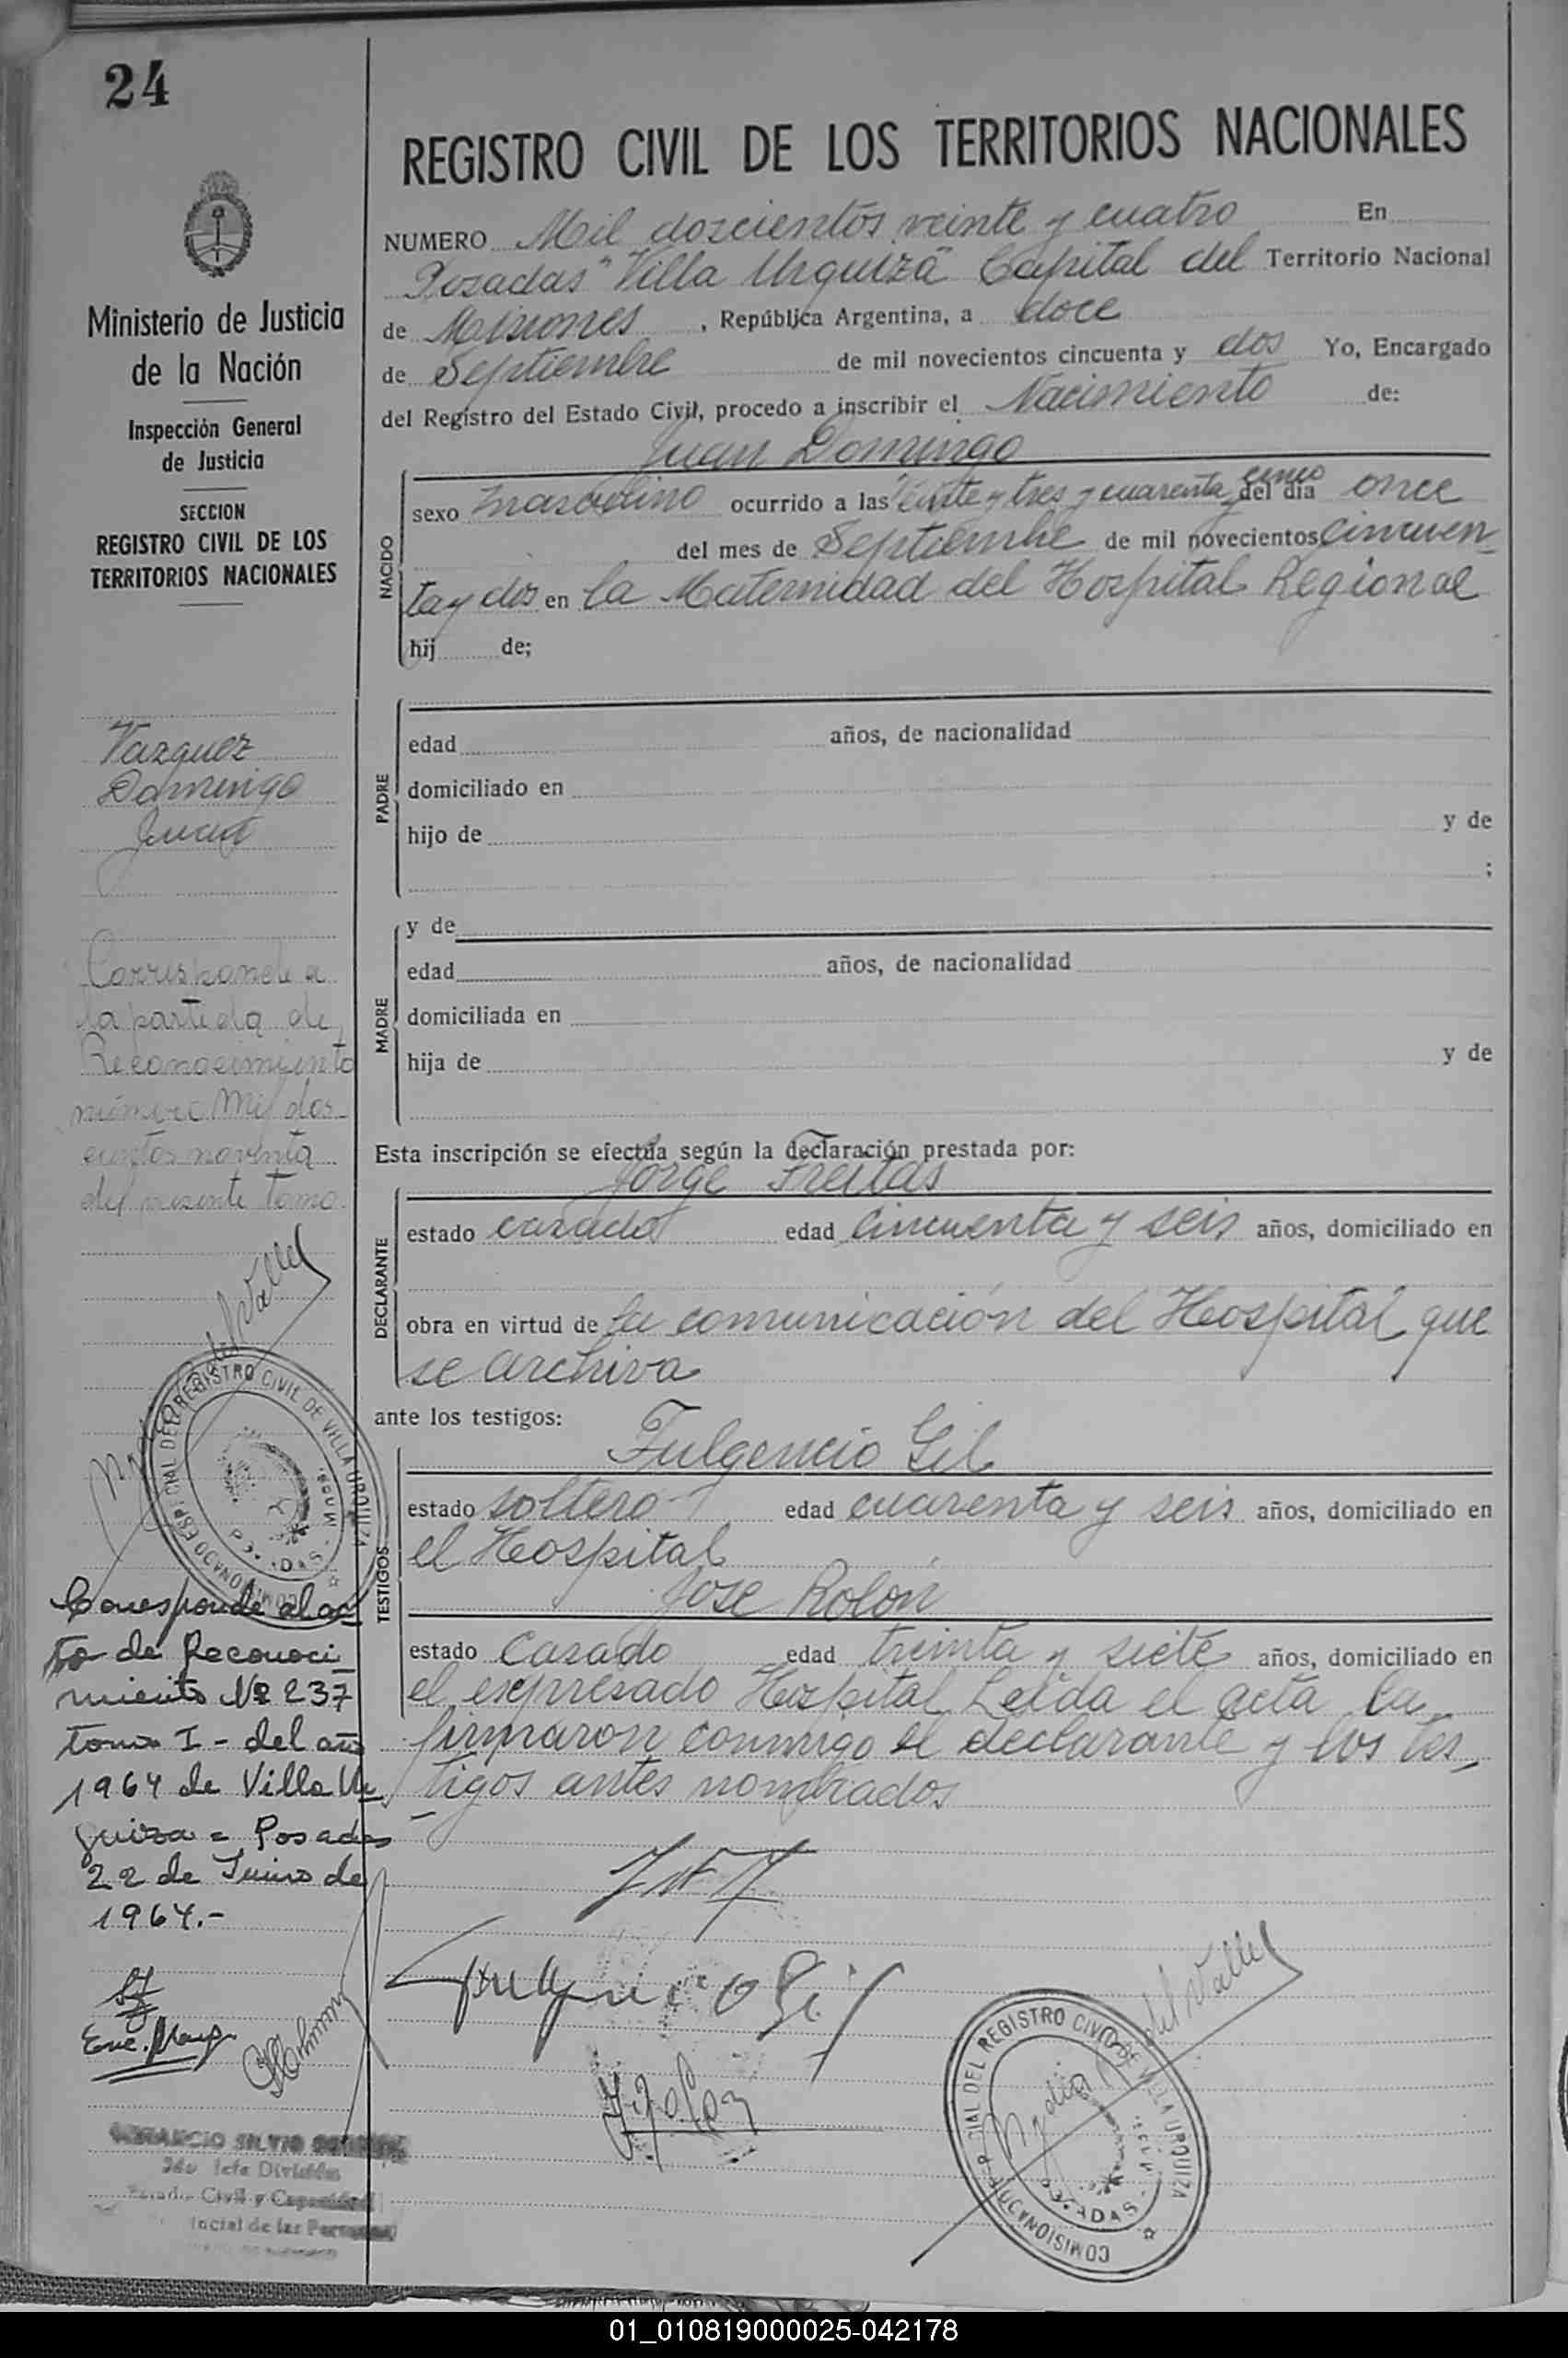 24
REGISTRO CIVIL DE LOS TERRITORIOS NACIONALES
Ministerio de Justicia
de la Nación
Inspección General
de Justicia
SECCION
REGISTRO CIVIL DE LOS
TERRITORIOS NACIONALES
Vazquez
Domingo
Juan
Corresponde a
la partida de
Reconocimiento
número Mil dos-
cientos noventa
del presente tomo.
Corresponde al ac-
to de Reconoci-
miento Nº 237
tomo I - del año
1964 de Villa Ur-
quiza = Posadas
22 de Junio de
1964.-
NUMERO Mil doscientos veinte y cuatro En
Posadas "Villa Urquiza" Capital del Territorio Nacional
de Misiones, República Argentina, a doce
de Septiembre de mil novecientos cincuenta y dos Yo, Encargado
del Registro del Estado Civil, procedo a inscribir el Nacimiento de:
Juan Domingo
NACIDO
sexo masculino ocurrido a las veinte y tres y cuarenta y cinco del día once
del mes de Septiembre de mil novecientos cincuen-
ta y dos en la Maternidad del Hospital Regional
hij de;
PADRE
edad años, de nacionalidad
domiciliado en
hijo de y de
;
MADRE
y de
edad años, de nacionalidad
domiciliada en
hija de y de
Esta inscripción se efectúa según la declaración prestada por:
Jorge Freitas
DECLARANTE
estado casado edad cincuenta y seis años, domiciliado en
obra en virtud de la comunicación del Hospital que
se archiva
ante los testigos:
Fulgencio Gil
TESTIGOS
estado soltero edad cuarenta y seis años, domiciliado en
el Hospital
Jose Rolon
estado Casado edad treinta y siete años, domiciliado en
el expresado Hospital Leída el acta la
firmaron conmigo el declarante y los tes-
tigos antes nombrados
COMISIONADO ESPECIAL DEL REGISTRO CIVIL DE VILLA URQUIZA
POSADAS
01_010819000025-042178